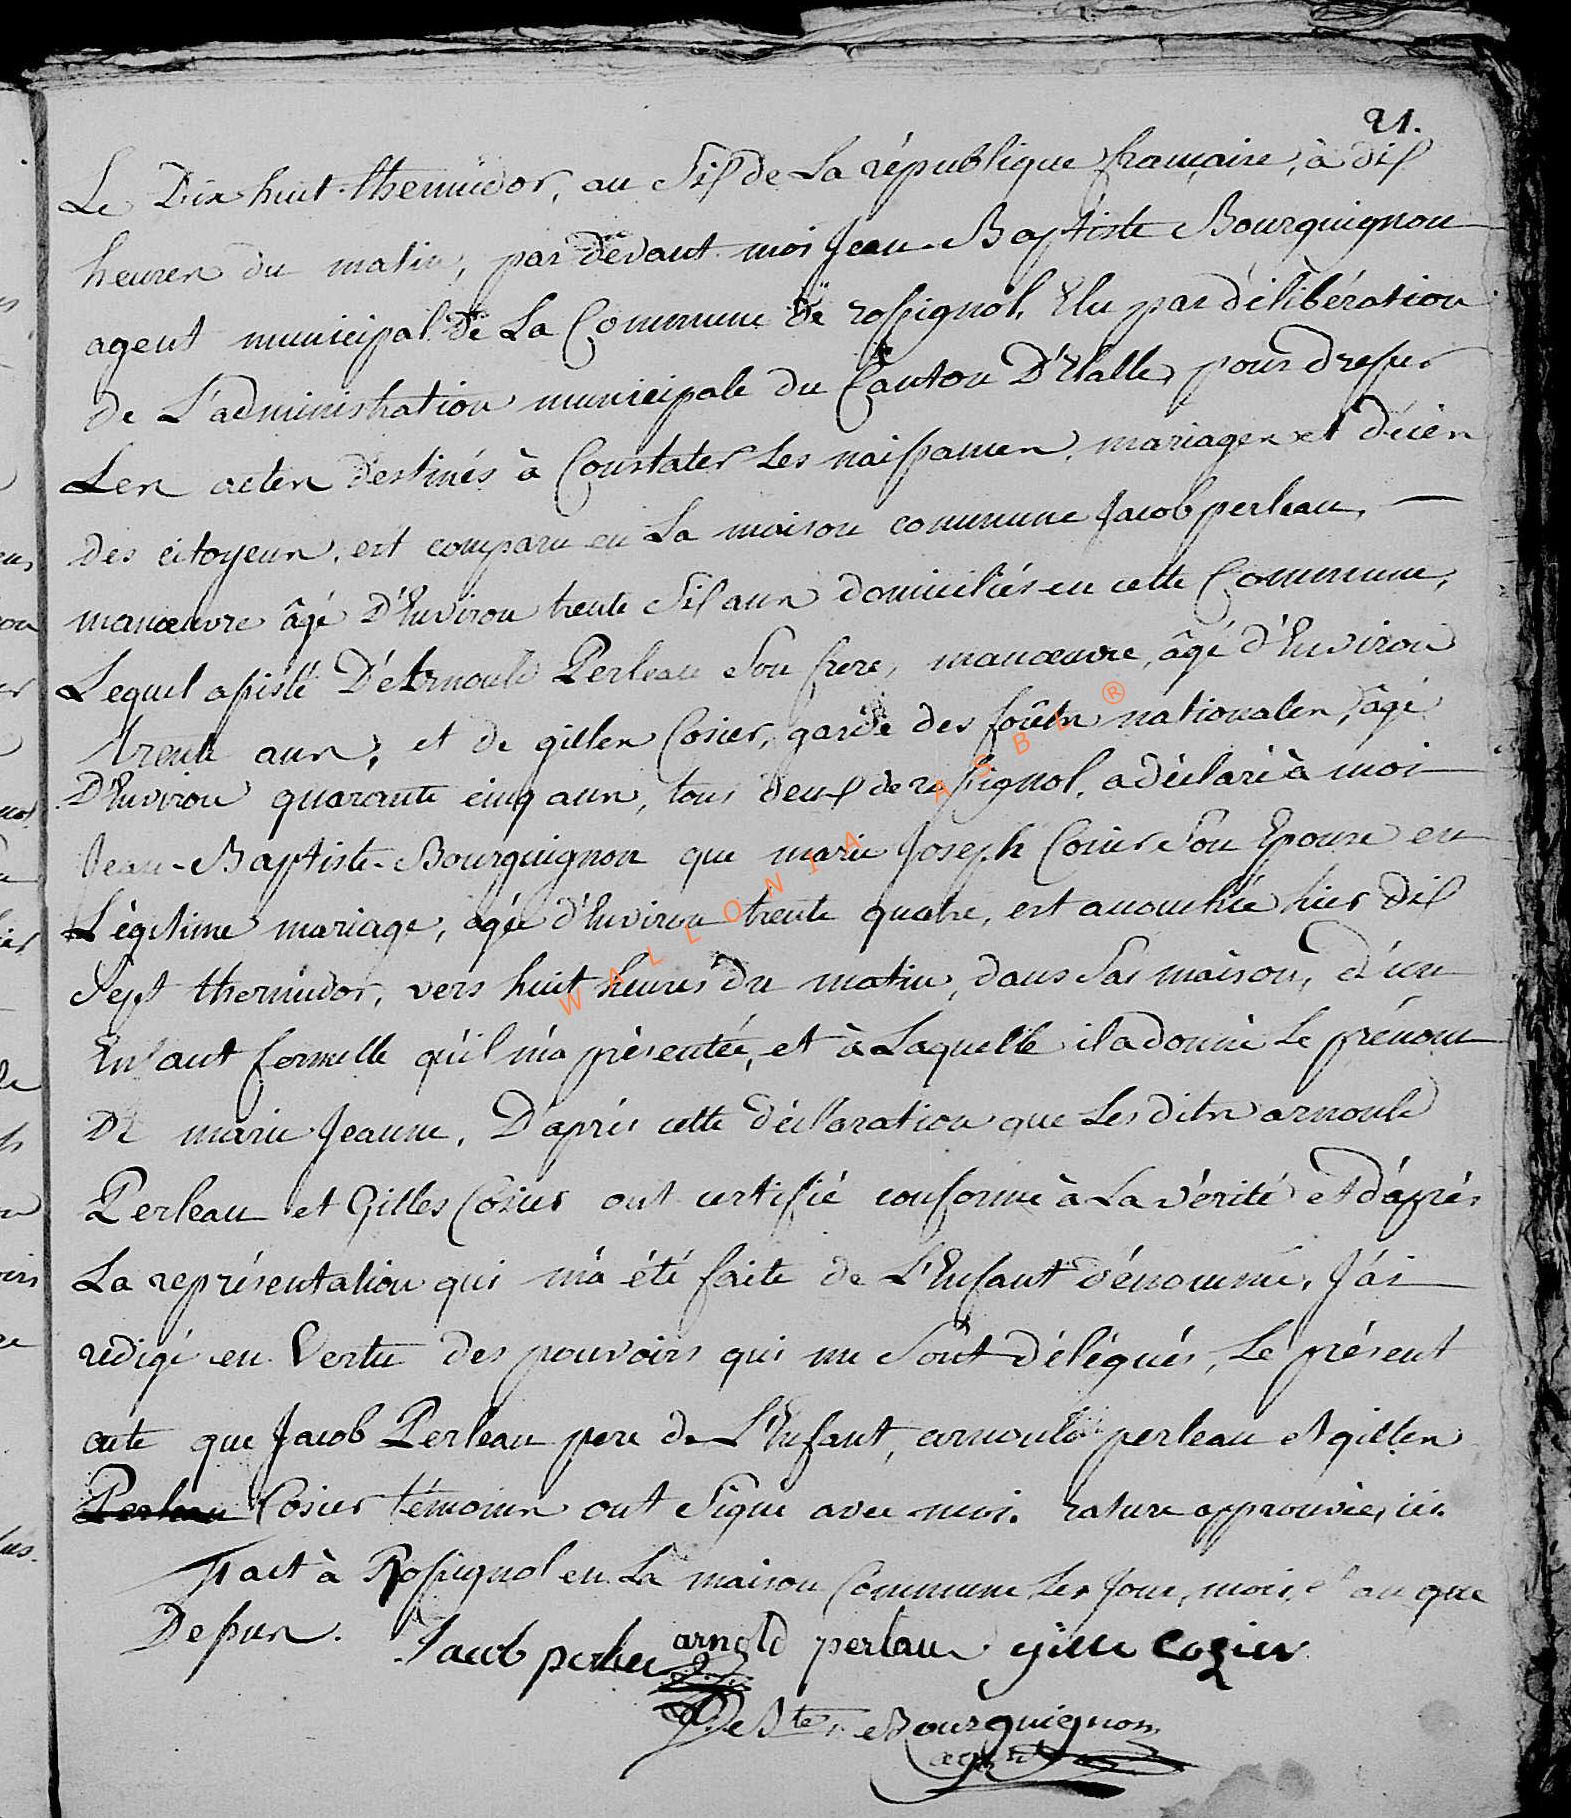 21.
Le Dix huit thermidor, an Six de La république française, à dix
heures du matin, par devant moi Jean-Baptiste Bourguignon
agent municipal de La Commune de rossignol, Elu par délibération
de L'administration municipale du Canton D'Etalle, pour dresser
Les actes destinés à Constater Les naissances, mariages et décès
des citoyens, est comparu en La maison commune Jacob perleau,
manœuvre âgé D'Environ trente Six ans domiciliés en cette Commune,
Lequel assisté D'Arnould Perleau Son frere, manœuvre, âgé d'Environ
trente ans, et de gilles Cosier, garde des forêts nationales, âgé
D'Environ quarante cinq ans, tous deux de rossignol, a déclaré à moi
Jean-Baptiste-Bourguignon que marie Joseph Cosier Son Epouse en
Légitime mariage, agée d'Environ trente quatre, est accouchée hier dix
Sept thermidor, vers huit heures du matin, dans Sa maison, d'un
Enfant femelle qu'il m'a présentée, et à Laquelle il a donné Le prénom
De marie Jeanne, D'après cette déclaration que Les dits arnould
Perleau et Gilles Cosier ont certifié conforme à La vérité et d'après
La représentation qui m'a été faite de L'Enfant dénommé, J'ai
rédigé en Vertu des pouvoirs qui me Sont délégués, Le présent
acte que Jacob Perleau pere de L'Enfant, arnould perleau et gilles
Perleau Cosier témoins ont Signé avec moi. rature approuvée, ici.
Fait à Rossignol en La maison Commune Les Jour, mois, et an que
Dessus.
Jacob perleau arnold perlau gille cozier
JeBte Bourguignon
agent
WALLONIA ASBL ®